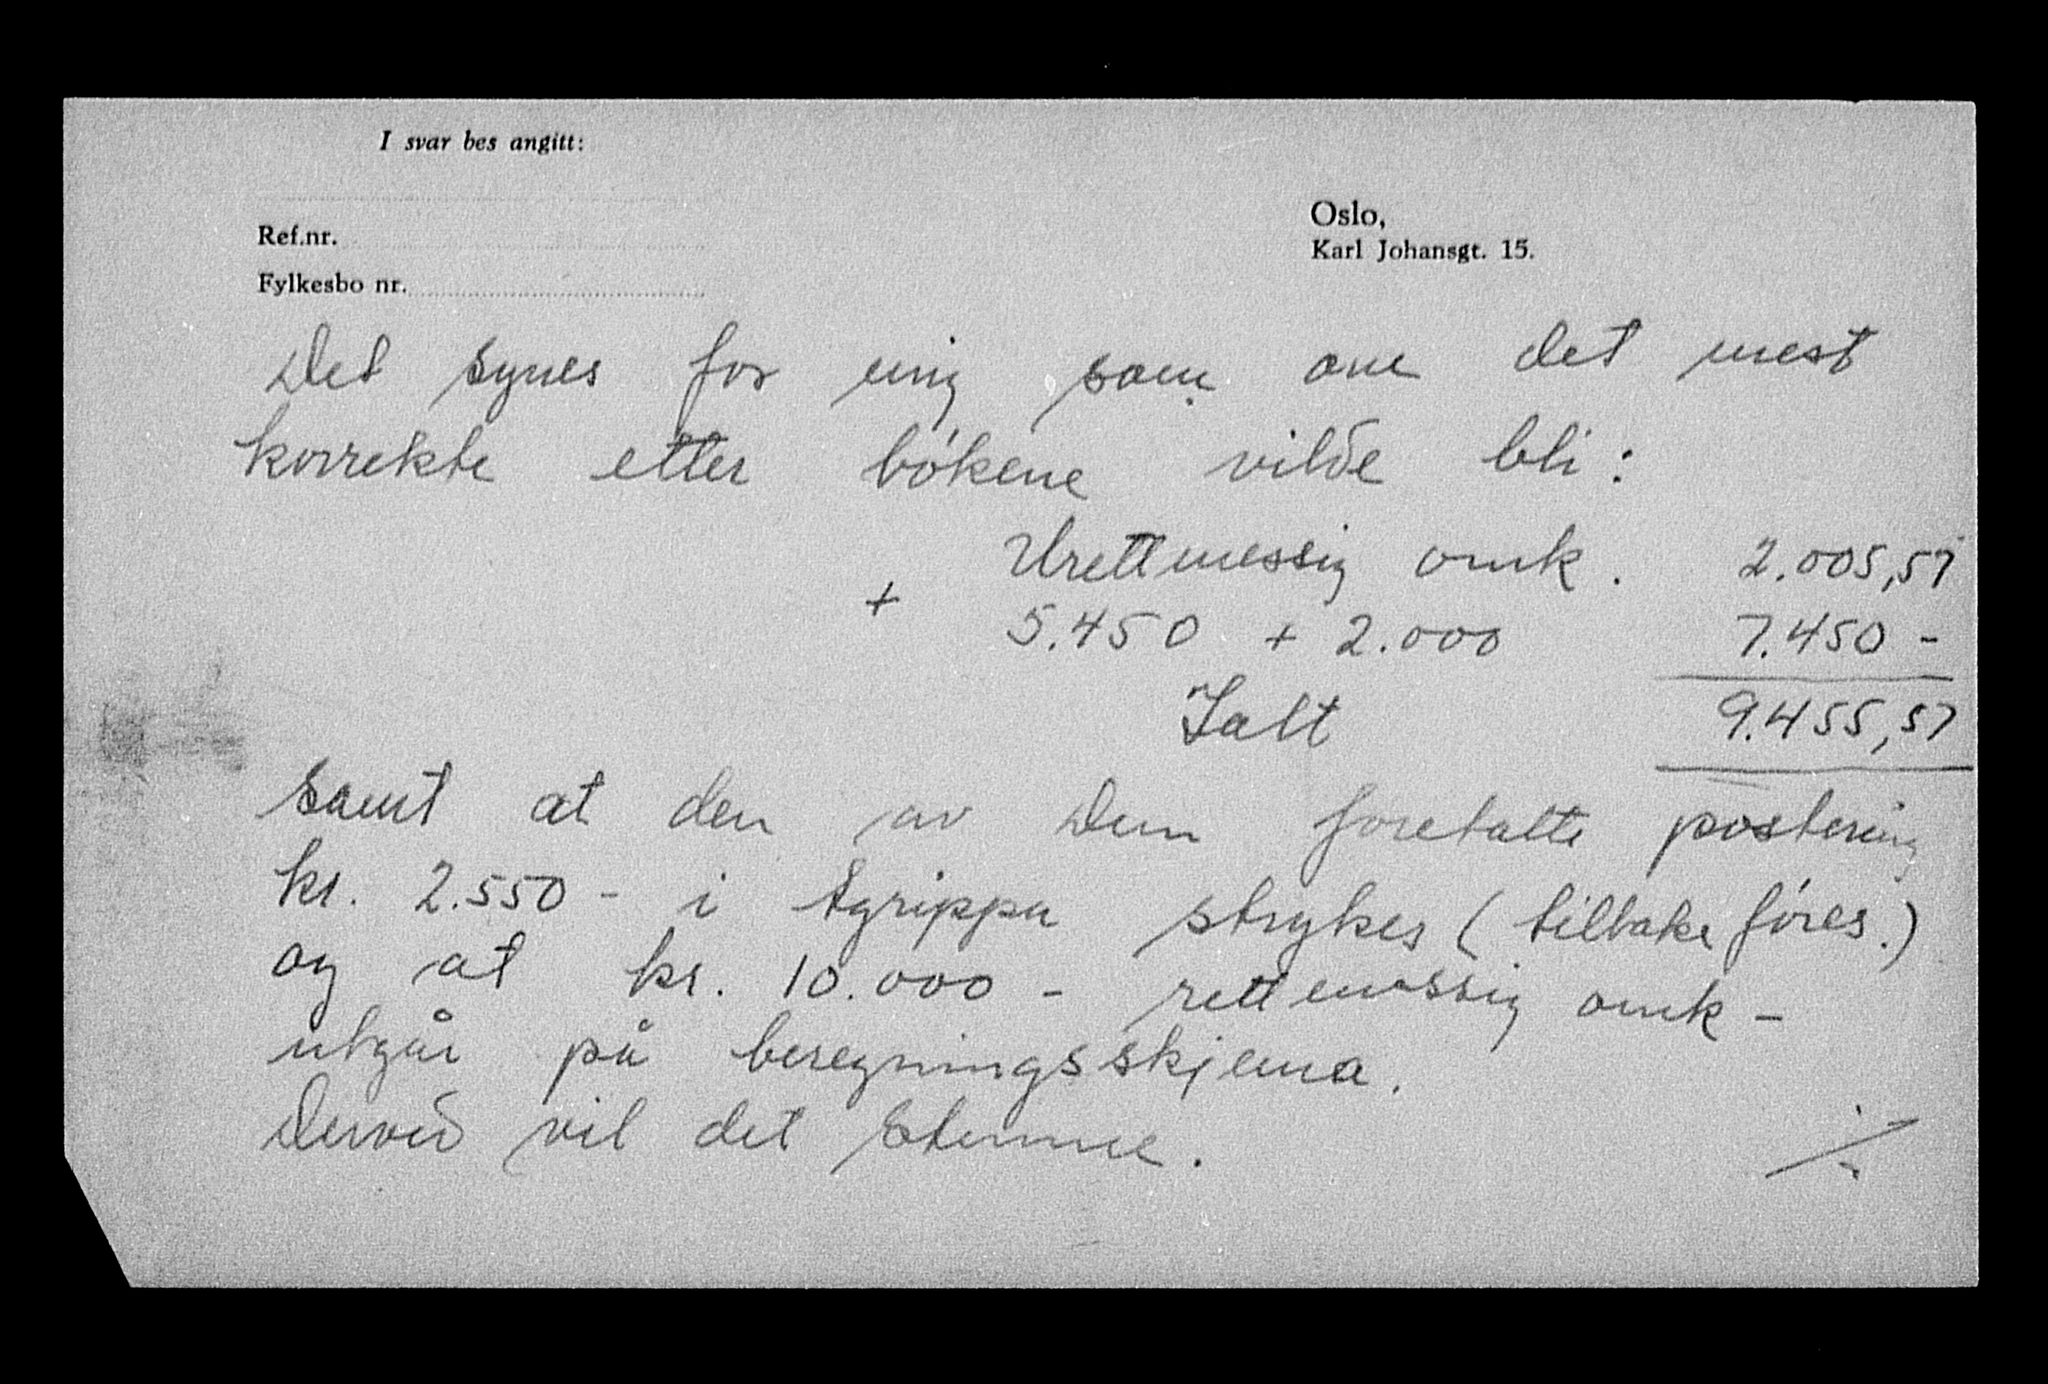 I svar bes angitt:
Ref.nr.
Fylkesbo nr.
Oslo,
Karl Johansgt. 15.
Det synes for mig som om det mest
korrekte etter bókene vilde bli:
Urettmessig omk. 2.005,57
+ 5.450 + 2.000 7.450 -
Ialt 9.455,57
samt at den av Dem foretatte postering
kr. 2.550 - i Agrippa strykes (tilbake fóres.)
og at kr. 10.000 - rettmessig omk -
utgår på beregningsskjema.
Derved vil det stemme.